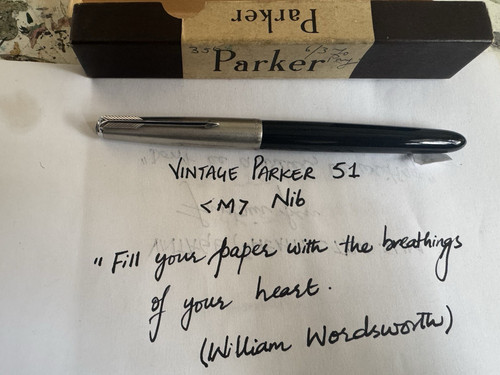 Parker
Parker
VINTAGE PARKER 51
<M> Nib
"Fill your paper with the breathings
of your heart.
(William Wordsworth)